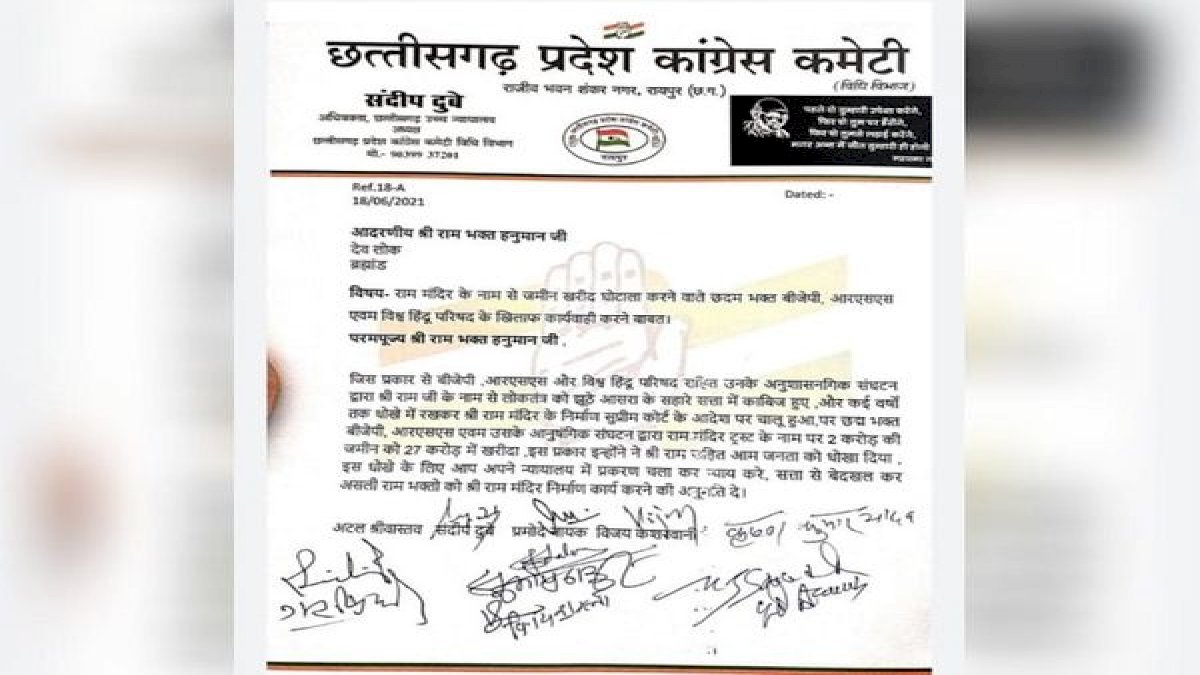 छत्तीसगढ़ प्रदेश कांग्रेस कमेटी
(विधि विभाग)
राजीव भवन शंकर नगर, रायपुर (छ.ग.)
संदीप दुबे
अधिवक्ता, छत्तीसगढ़ उच्च न्यायालय
अध्यक्ष
छत्तीसगढ़ प्रदेश कांग्रेस कमेटी विधि विभाग
मो.- 90399 37201
रायपुर
पहले वो तुम्हारी उपेक्षा करेंगे,
फिर वो तुम पर हँसेंगे,
फिर वो तुमसे लड़ाई करेंगे,
मगर अन्त में जीत तुम्हारी ही होगी
Ref.18-A
18/06/2021
Dated: -
आदरणीय श्री राम भक्त हनुमान जी
देव लोक
ब्रह्मांड
विषय- राम मंदिर के नाम से जमीन खरीद घोटाला करने वाले छदम भक्त बीजेपी, आरएसएस
एवम विश्व हिंदू परिषद के खिलाफ कार्यवाही करने बाबत।
परमपूज्य श्री राम भक्त हनुमान जी ,
जिस प्रकार से बीजेपी ,आरएसएस और विश्व हिंदू परिषद सहित उनके अनुशासनगिक संघटन
द्वारा श्री राम जी के नाम से लोकतंत्र को झूठे आसरा के सहारे सत्ता में काबिज हुए ,और कई वर्षो
तक धोखे में रखकर श्री राम मंदिर के निर्माण सुप्रीम कोर्ट के आदेश पर चालू हुआ,पर छद्म भक्त
बीजेपी, आरएसएस एवम उसके आनुषंगिक संघटन द्वारा राम मंदिर ट्रस्ट के नाम पर 2 करोड़ की
जमीन को 27 करोड़ में खरीदा ,इस प्रकार इन्होंने ने श्री राम सहित आम जनता को धोखा दिया ,
इस धोखे के लिए आप अपने न्यायालय में प्रकरण चला कर न्याय करे, सत्ता से बेदखल कर
असली राम भक्तो को श्री राम मंदिर निर्माण कार्य करने की अनुमति दे।
अटल श्रीवास्तव संदीप दुबे प्रमोद नायक विजय केशरवानी